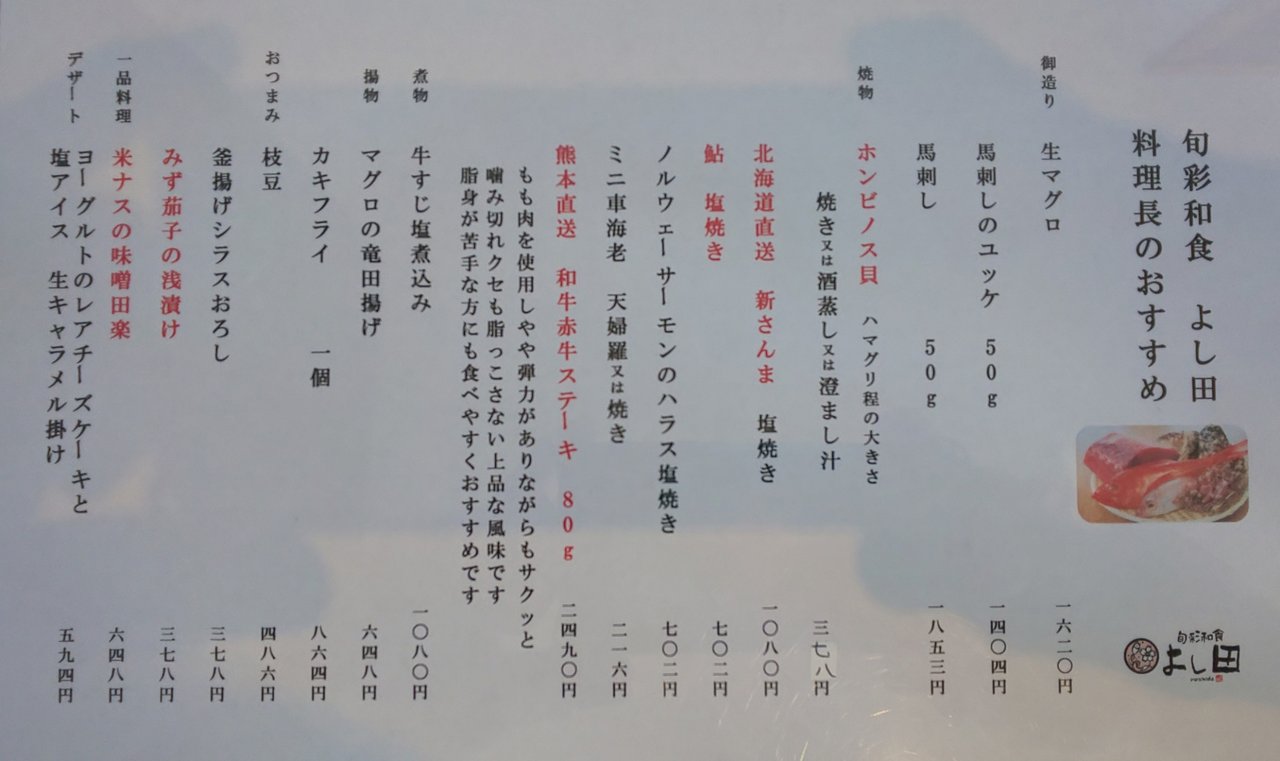 旬彩和食　よし田
料理長のおすすめ
旬彩和食
よし田
yoshida
御造り　生マグロ　一六二〇円
馬刺しのユッケ　50g　一四〇四円
馬刺し　50g　一八五三円
焼物　ホンビノス貝　ハマグリ程の大きさ
焼き又は酒蒸し又は澄まし汁　三七八円
北海道直送　新さんま　塩焼き　一〇八〇円
鮎　塩焼き　七〇二円
ノルウェーサーモンのハラス塩焼き　七〇二円
ミニ車海老　天婦羅又は焼き　二一六円
熊本直送　和牛赤牛ステーキ　80g　二四九〇円
もも肉を使用しやや弾力がありながらもサクッと
噛み切れクセも脂っこさない上品な風味です
脂身が苦手な方にも食べやすくおすすめです
煮物　牛すじ塩煮込み　一〇八〇円
揚物　マグロの竜田揚げ　六四八円
カキフライ　一個　八六四円
おつまみ　枝豆　四八六円
釜揚げシラスおろし　三七八円
みず茄子の浅漬け　三七八円
一品料理　米ナスの味噌田楽　六四八円
デザート　ヨーグルトのレアチーズケーキと
塩アイス　生キャラメル掛け　五九四円